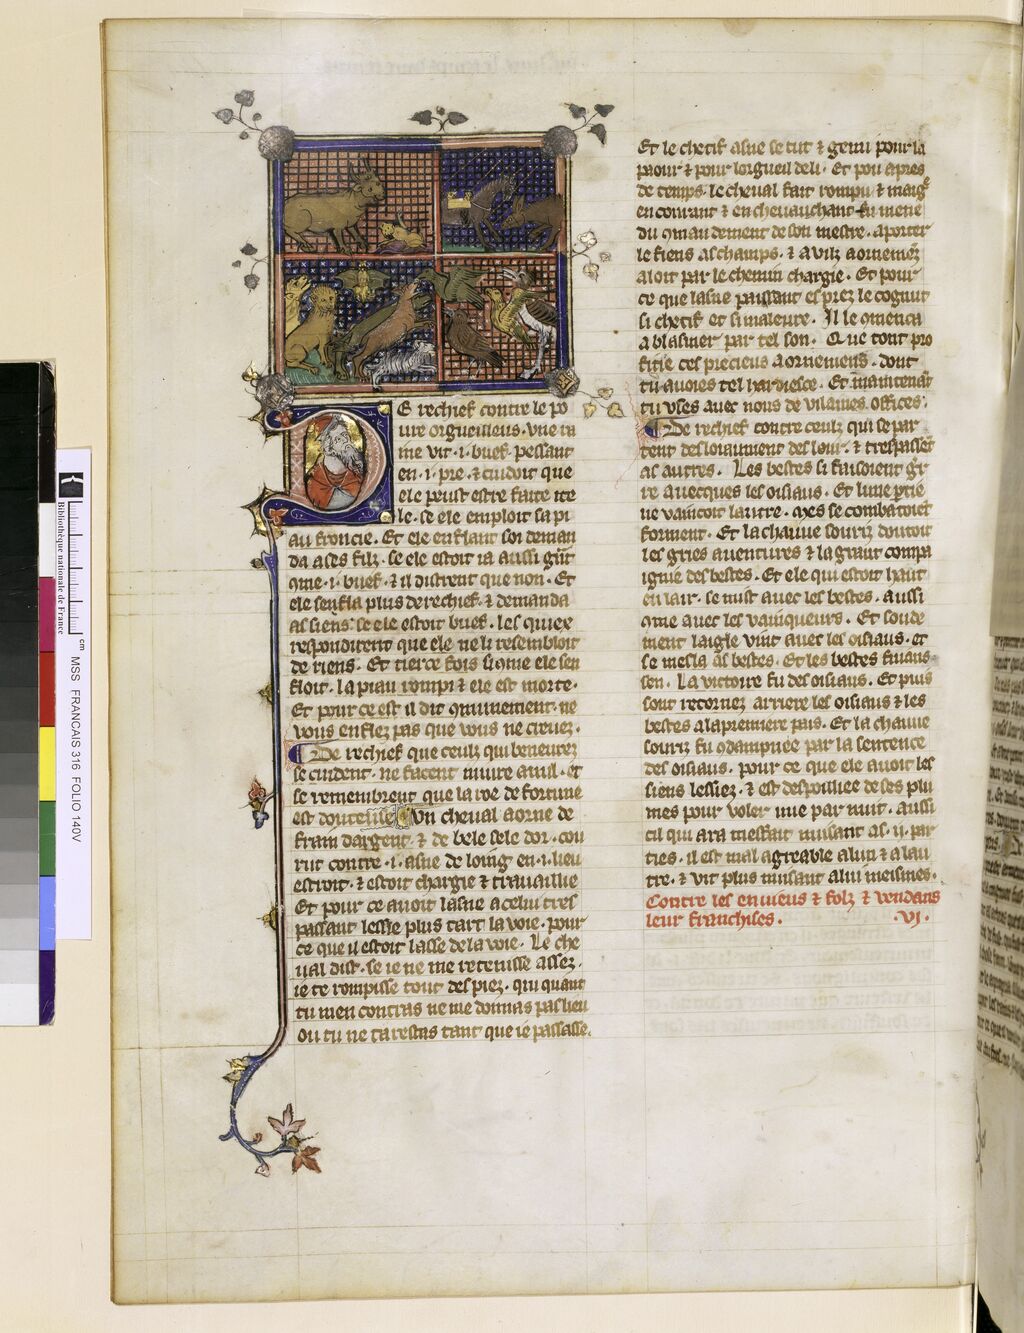 De rechief contre le po
ure orgueilleus. vne ra
me vit .i. buef pessant
en .i. pre. ⁊ cuidoit que
ele peust estre faite ite
le. se ele emploit sa pi
au froncie. Et ele enflant soi deman
da a ses filz. se ele estoit ia aussi grāt
9me .i. buef. ⁊ il distrent que non. Et
ele senfla plus derechief. ⁊ demanda
as siens se ele estoit buef. les quiex
respondirent que ele ne li resembloit
de riens. Et tierce fois si 9me ele sen
floit. la piau rompi ⁊ ele est morte.
Et pour ce est il dit 9munement. ne
vous enflez pas que vous ne creuez.
De rechief que ceulz qui beneurez
se cuident. ne facent iniure a nul. et
se remembrent que la roe de fortune
est douteuse. Un cheval aorne de
frain dargent. ⁊ de bele sele dor. cou
rut contre .i. asne de loing en .i. lieu
estroit. ⁊ estoit chargie ⁊ travaillie
Et pour ce avoit lasne a celui tres
passant lessie plus tart la voie. pour
ce que il estoit lasse de la voie. Le che
ual dist. se ie ne me retenisse assez.
ie te rompisse tout des piez. qui quant
tu men contras ne me donnas pas lieu
ou tu ne tarestas tant que ie passasse.
Et le chetif asne se tut ⁊ gemi pour la
paour ⁊ pour lorgueil de li. Et pou apres
de temps. le cheval fait rompu ⁊ maigre
en courant ⁊ en chevauchant fu mene
du 9mandement de son mestre. aporter
le fiens as champs. ⁊ a vilz aornemenz
aloit par le chemin chargie. Et pour
ce que lasne paissant es prez le cognut
si chetif et si maleure. Il le 9menca
a blasmer par tel son. Que tont pro
fitie ces precieus aornemens. dont
tu auoies tel hardiesce. Et maintenant
tu uses avec nous de vilaines offices.
De rechief contre ceulz qui se par
tent desloiaument des lour. ⁊ trespassent
as autres. Les bestes si faisoient guer
re avecques les oisiaus. Et lune partie
ne vaincoit lautre. mes se combatoient
forment. Et la chauue souriz doutoit
les gries auentures ⁊ la grant compa
ignie des bestes. Et ele qui estoit haut
en lair. se mist avec les bestes. aussi
9me avec les vainqueurs. Et soude
ment laigle vint avec les oisiaus. et
se mesla as bestes. Et les bestes fuians
sen. La victoire fu des oisiaus. Et puis
sont retornez arriere les oisiaus ⁊ les
bestes a la premiere pais. Et la chauue
souriz fu 9dampnee par la sentence
des oisiaus. pour ce que ele avoit les
siens lessiez. ⁊ est despoulliee de ses plu
mes pour voler nue par nuit. aussi
cil qui ara meffait nuisant as .ii. par
ties. il est mal agreable a lun ⁊ a lau
tre. ⁊ vit plus nuisant a lui meismes.
Contre les envieus ⁊ folz ⁊ vendans
leur franchises. VI.
Bibliothèque nationale de France
cm
MSS FRANCAIS 316 FOLIO 140V